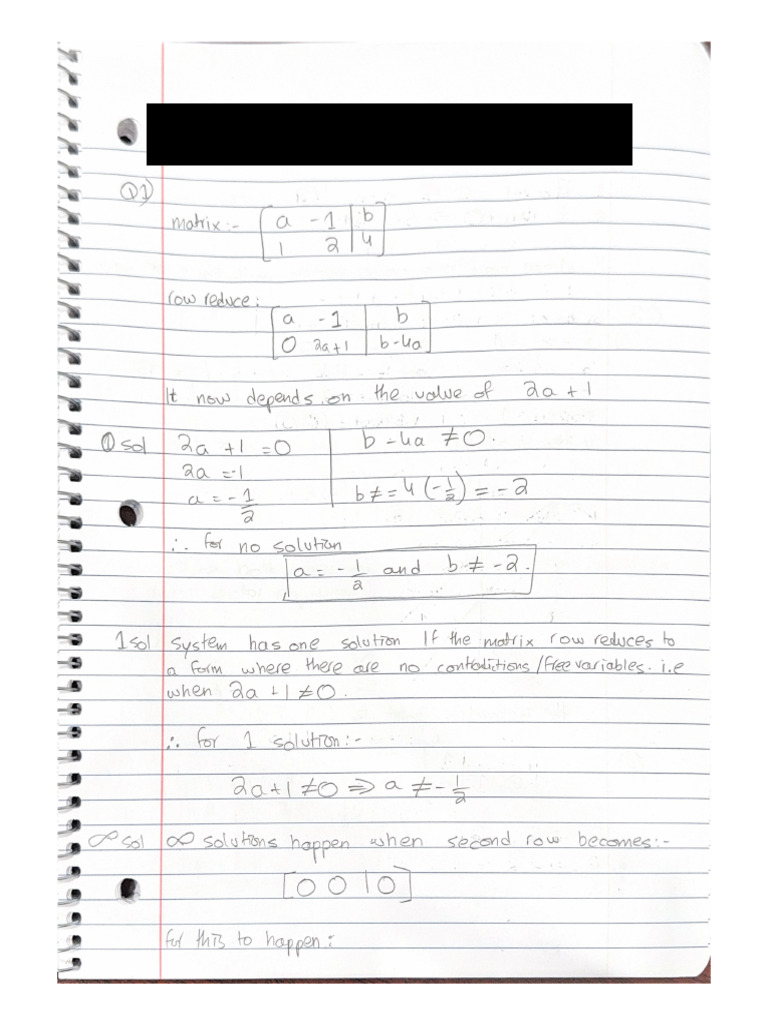 Q1)
matrix:- [a -1 | b
1 2 | 4]
row reduce:
[a -1 | b
0 2a+1 | b-4a]
It now depends on the value of 2a + 1
0 sol 2a + 1 = 0 | b - 4a ≠ 0.
2a = -1
a = -1/2 | b ≠ = 4 (-1/2) = -2
∴ for no solution
a = -1/2 and b ≠ -2.
1 sol System has one solution If the matrix row reduces to
a form where there are no contradictions/free variables. i.e
when 2a + 1 ≠ 0.
∴ for 1 solution:-
2a+1 ≠ 0 => a ≠ -1/2
∞ sol ∞ solutions happen when second row becomes:-
[0 0 | 0]
for this to happen: